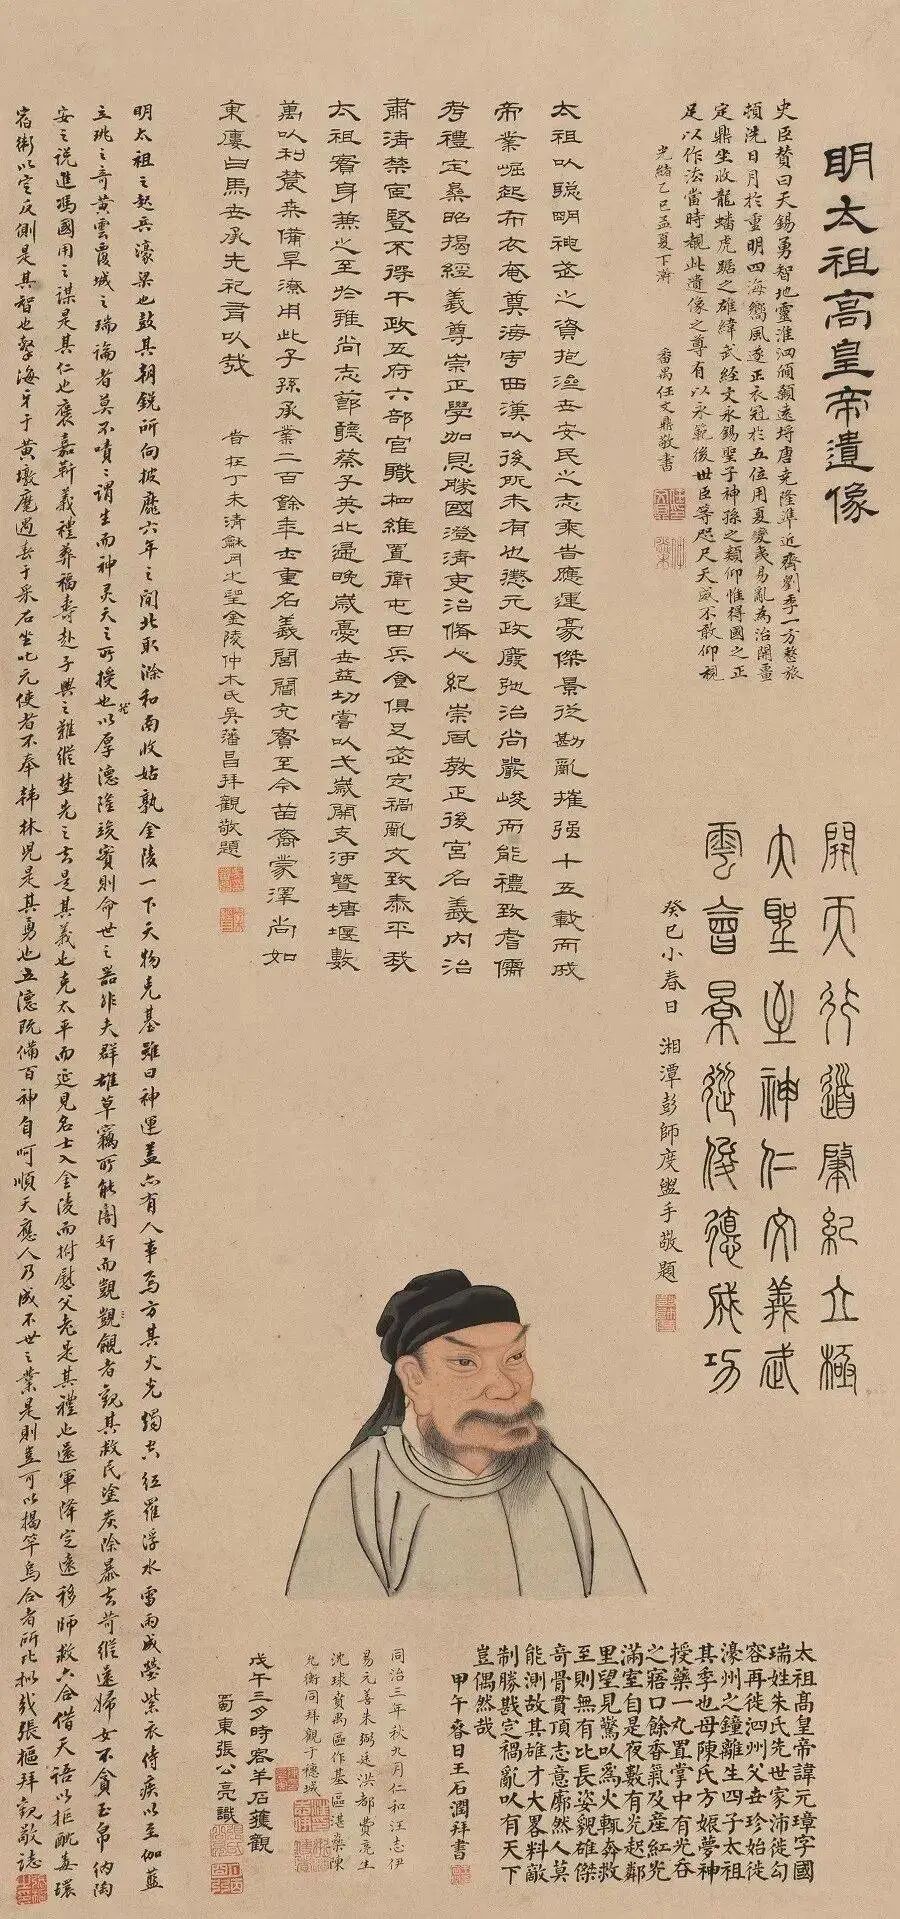 明太祖高皇帝遺像
史臣贊曰天錫勇智地靈淮泗頎顙遠埒唐堯隆準近齊劉季一方整旅
頓洗日月於重明四海嚮風遂正衣冠於五位用夏變夷易亂為治開畺
定鼎坐收龍蟠虎踞之雄緯武經文永錫聖子神孫之類仰惟得國之正
足以作法當時覩此遺像之尊有以永範後世臣等咫尺天威不敢仰視
光緒乙巳孟夏下澣 番禺任文鼎敬書
開天行道肇紀立極
大聖至神仁文義武
雲會景從俊德成功
癸巳小春日 湘潭彭師度盥手敬題
太祖以聰明神武之資抱濟世安民之志乘時應運豪傑景從勘亂摧强十五載而成
帝業崛起布衣奄奠海宇西漢以後所未有也懲元政廢弛治尚嚴峻而能禮致耆儒
考禮定樂昭揭經義尊崇正學加恩勝國澄清吏治脩人紀崇風教正後宮名義內治
肅清禁宦豎不得干政五府六部官職相維置衛屯田兵食俱足武定禍亂文致泰平我
太祖實身兼之至於雅尚志節聽蔡子英北歸晚歲憂世益切嘗以一歲開支河暨塘堰數
萬以利農桑備旱潦用此子孫承業二百餘年士重名義閭閻充實至今苗裔蒙澤尚如
東廔白馬世承先祀有以哉
時在丁未清龢月之望金陵仲木氏吳藩昌拜觀敬題
明太祖之起兵濠梁也鼓其朝銳所向披靡六年之間北取滁和南收姑孰金陵一下天物克基雖曰神運蓋亦有人事焉方其火光燭空紅羅浮水雷雨成瑩紫衣侍疾以至伽藍
立珓之奇黃雲覆城之瑞論者莫不嘖之謂生而神灵天之所授也以厚德隆竣實則命世之器非夫群雄草竊所能闇奸而覬覦者觀其救民塗炭除暴去苛縱遠婦女不貪玉帛納陶
安之說進馮國用之謀是其仁也褒嘉靳義禮葬福壽赴子興之難縱埜先之去是其義也克太平而延見名士入金陵而拊慰父老是其禮也還軍降定遠移師救六合借天語以拒酖毒環
宿衛以室反側是其智也擊海牙于黃墩麾遇春于采石坐叱元使者不奉韩林児是其勇也五德阮備百神自呵順天應人乃成不世之業是則豈可以揭竿烏合者所比拟哉張樞拜觀敬誌
太祖高皇帝諱元璋字國
瑞姓朱氏先世家沛徙句
容再徙泗州父世珍始徙
濠州之鐘離生四子太祖
其季也母陳氏方娠夢神
授藥一丸置掌中有光吞
之寤口餘香氣及產紅光
滿室自是夜數有光起鄰
里望見驚以為火輒奔救
至則無有比長姿貌雄傑
奇骨貫頂志意廓然人莫
能測故其雄才大畧料敵
制勝戡定禍亂以有天下
豈偶然哉
甲午春日王石潤拜書
同治三年秋九月仁和汪志伊
易元善朱弼廷洪都費虎生
沈球寶禺區作基區湛棻陳
允衡同拜觀于穗城
戊午三月時客羊石獲觀
蜀東張公亮識